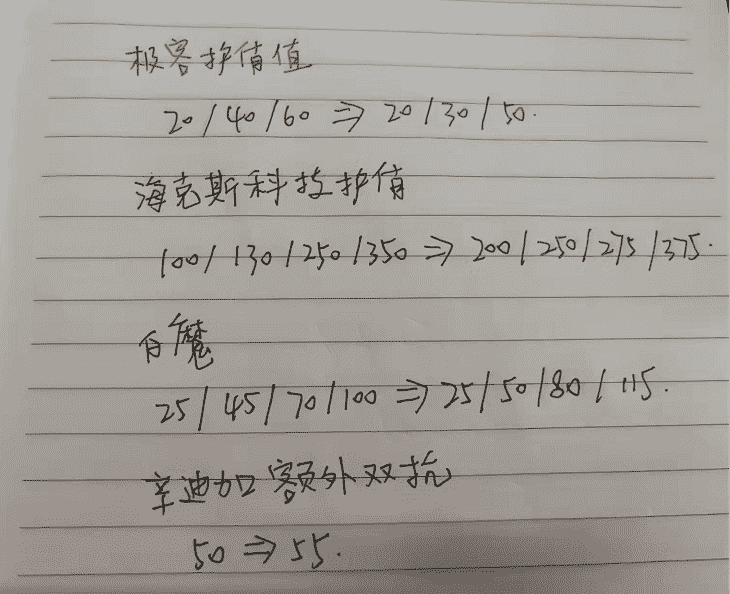 极客护盾值
20/40/60⇒20/30/50.
海克斯科技护盾
100/130/250/350⇒200/250/275/375.
白魔
25/45/70/100⇒25/50/80/115.
辛迪加额外双抗
50⇒55.